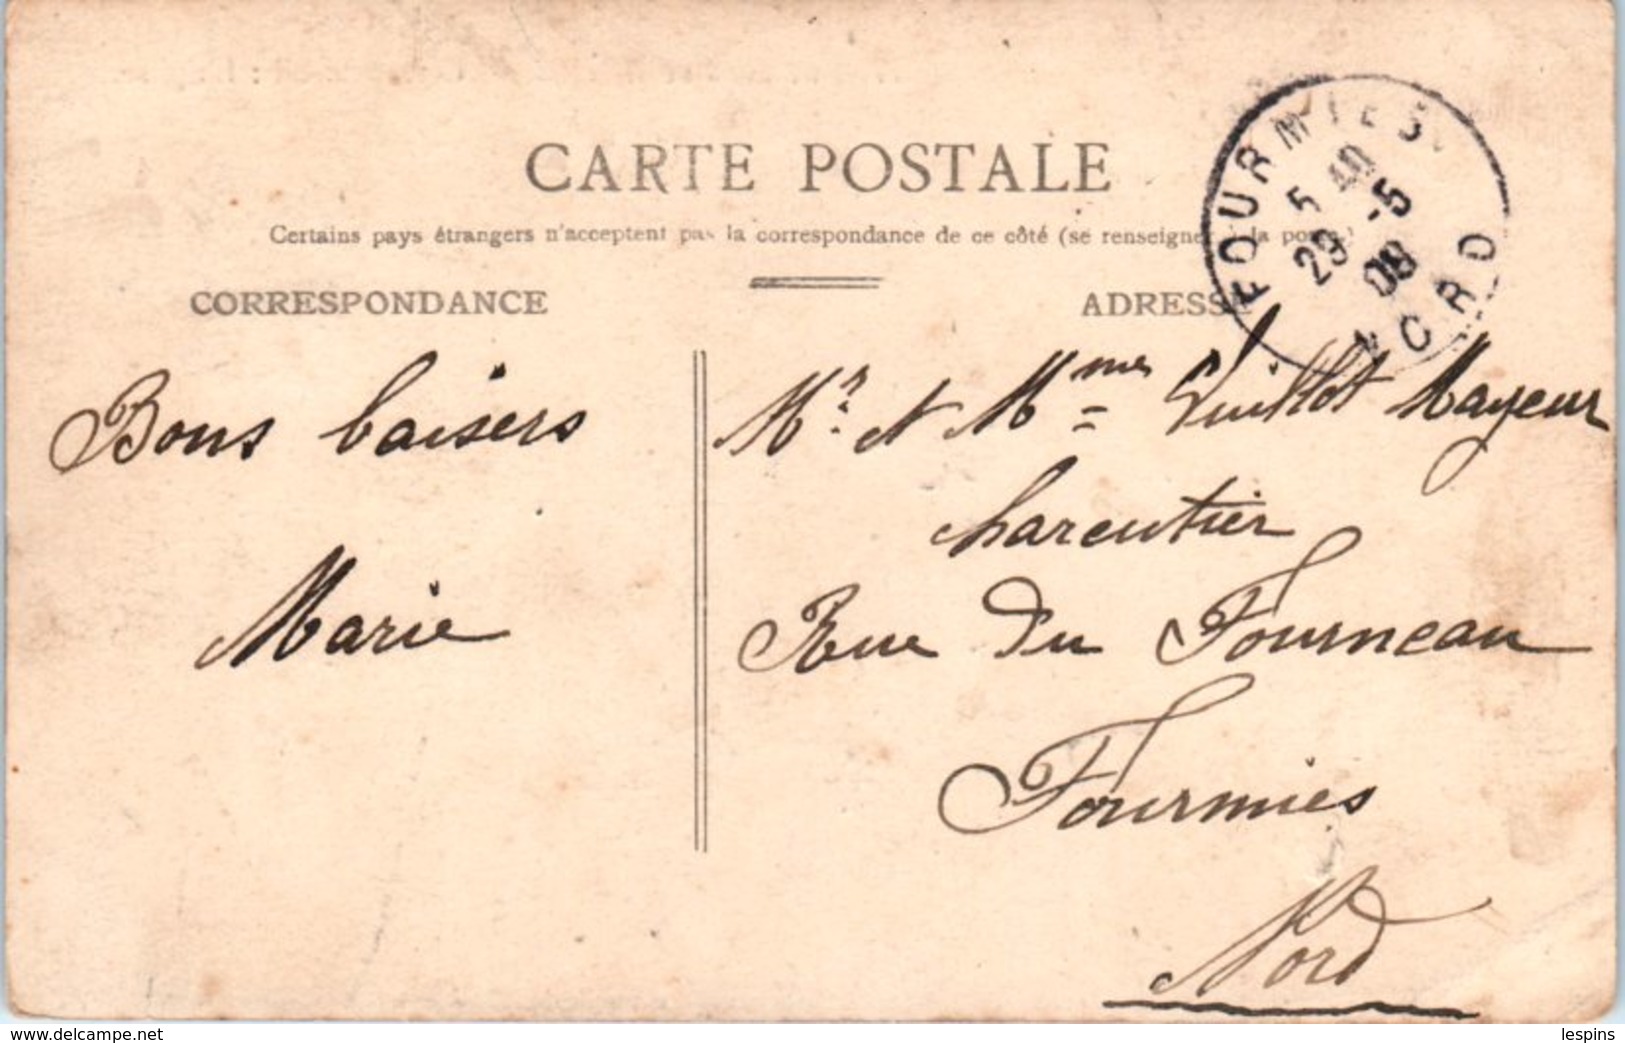 CARTE POSTALE
Certains pays étrangers n'acceptent pas la correspondance de ce côté (se renseigner à la poste)
CORRESPONDANCE
ADRESSE
FOURMIES
5 40
29 -5
08
NORD
Bons baisers
Marie
Mr. et Mme Vuillot Mayeur
charcutier
Rue Du Fourneau
Fourmies
Nord
www.delcampe.net
lespins